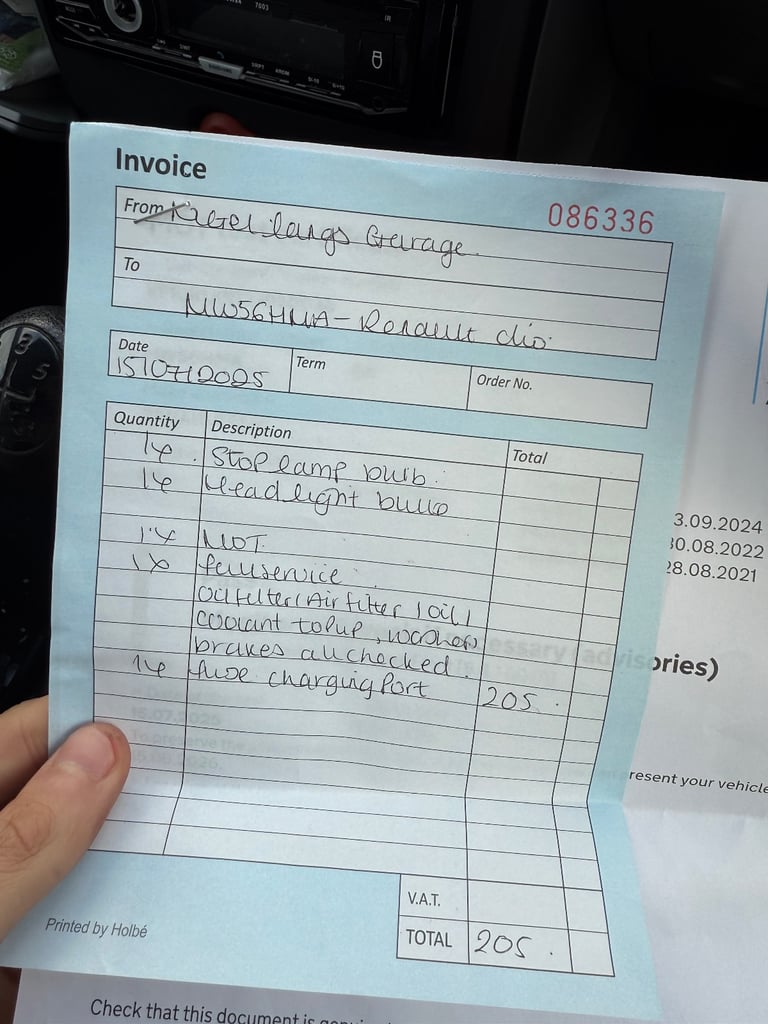 7003
Invoice
086336
From Garage
To
MW56HMA - Renault clio
Date
Term
Order No.
15/07/2025
Quantity
Description
Total
1x Stop lamp bulb
1x Head light bulb
1x MOT
1x full service
oil filter / Air filter / oil /
coolant topup, washer
brakes all checked.
1x fuse charging Port 205.
V.A.T.
TOTAL 205.
Printed by Holbé
3.09.2024
30.08.2022
28.08.2021
cessary (advisories)
resent your vehicle
Check that this document is